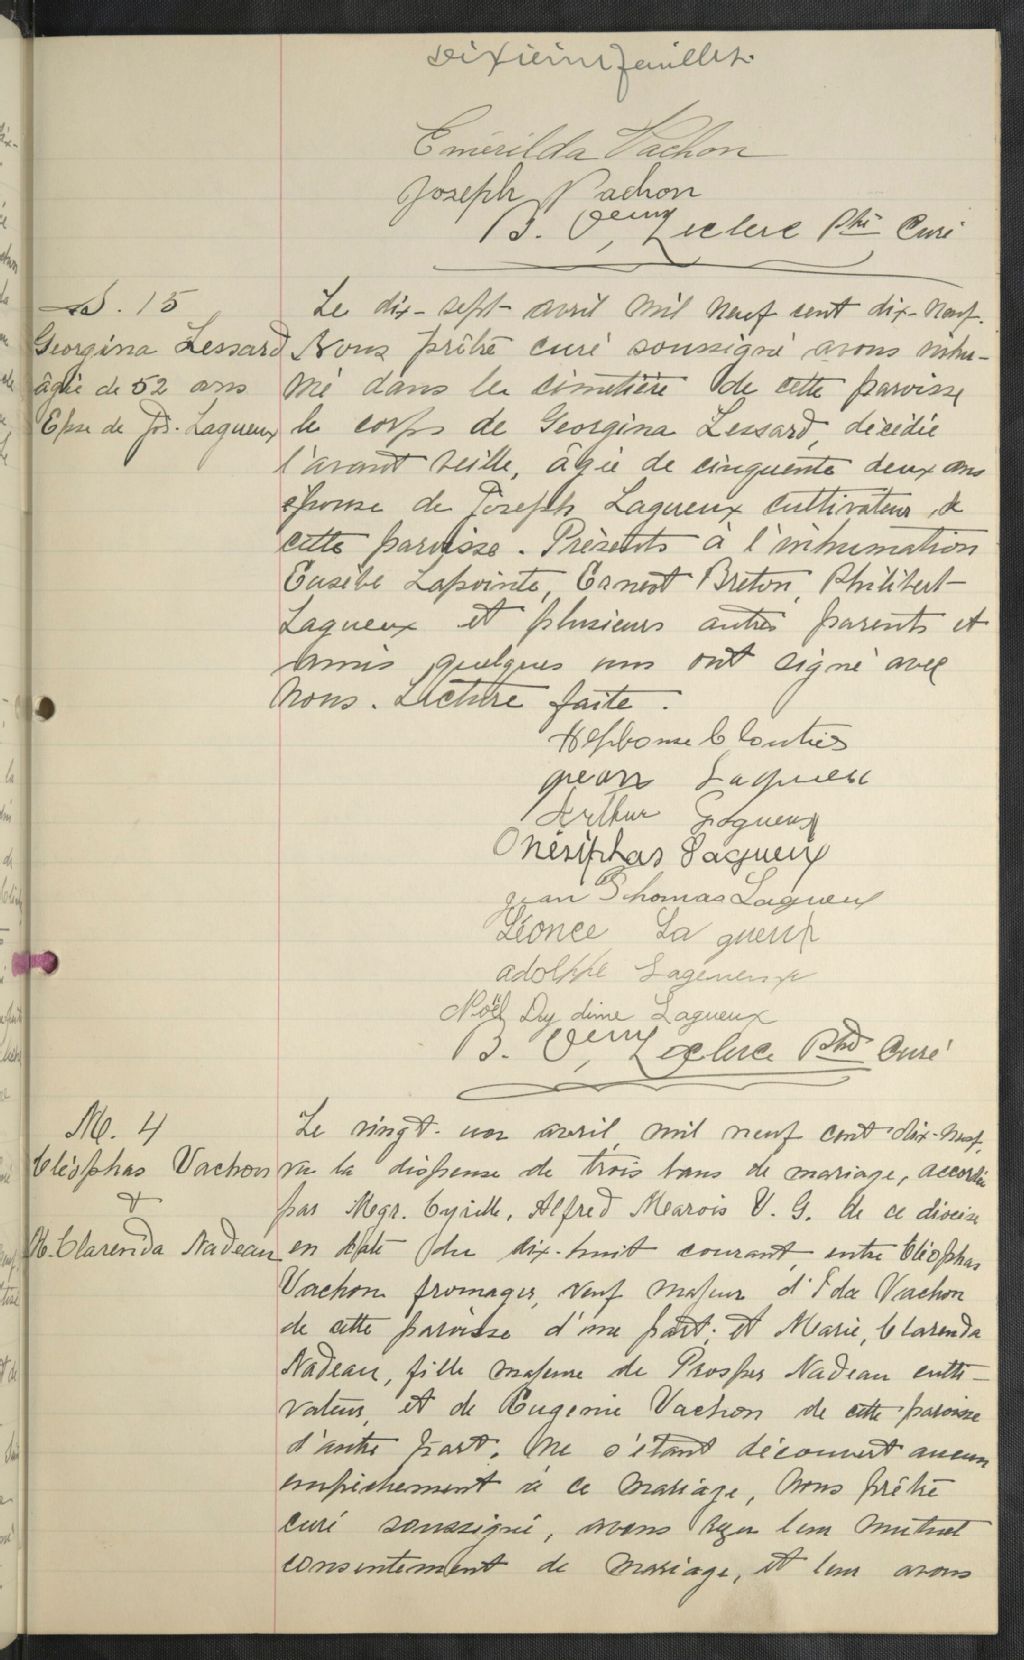 Dixième feuillet.
Emérilda Vachon
Joseph Vachon
B. Leclerc Ptre Curé
S. 15
Georgina Lessard
âgée de 52 ans
Epse de Jos. Lagueux
Le dix-sept avril mil neuf cent dix-neuf.
Nous prêtre curé soussigné avons inhu-
mé dans le cimetière de cette paroisse
le corps de Georgina Lessard, décédée
l'avant veille, âgée de cinquante deux ans
épouse de Joseph Lagueux cultivateur de
cette paroisse. Présents à l'inhumation
Eusèbe Lapointe, Ernest Breton, Philibert
Lagueux et plusieurs autres parents et
amis quelques uns ont signé avec
nous. Lecture faite.
Alphonse Cloutier
Lagueux
Arthur Lagueux
Onésiphas Lagueux
jean Thomas Lagueux
Léonce La gueux
adolphe Lageueux
Noël Dydime Lagueux
B. Leclerc Ptre Curé
M. 4
Cléophas Vachon
&
M. Clarenda Nadeau
Le vingt-un avril, mil neuf cent dix-neuf,
vu la dispense de trois bans de mariage, accordée
par Mgr. Cyrille, Alfred Marois V. G. de ce diocèse
en date du dix-huit courant, entre Cléophas
Vachon fromager, veuf majeur d'Eda Vachon
de cette paroisse d'une part; et Marie, Clarenda
Nadeau, fille majeure de Prosper Nadeau culti-
vateur, et de Eugenie Vachon de cette paroisse
d'autre part. Ne s'étant découvert aucun
empêchement à ce mariage, Nous prêtre
curé soussigné, avons reçu leur mutuel
consentement de mariage, et leur avons